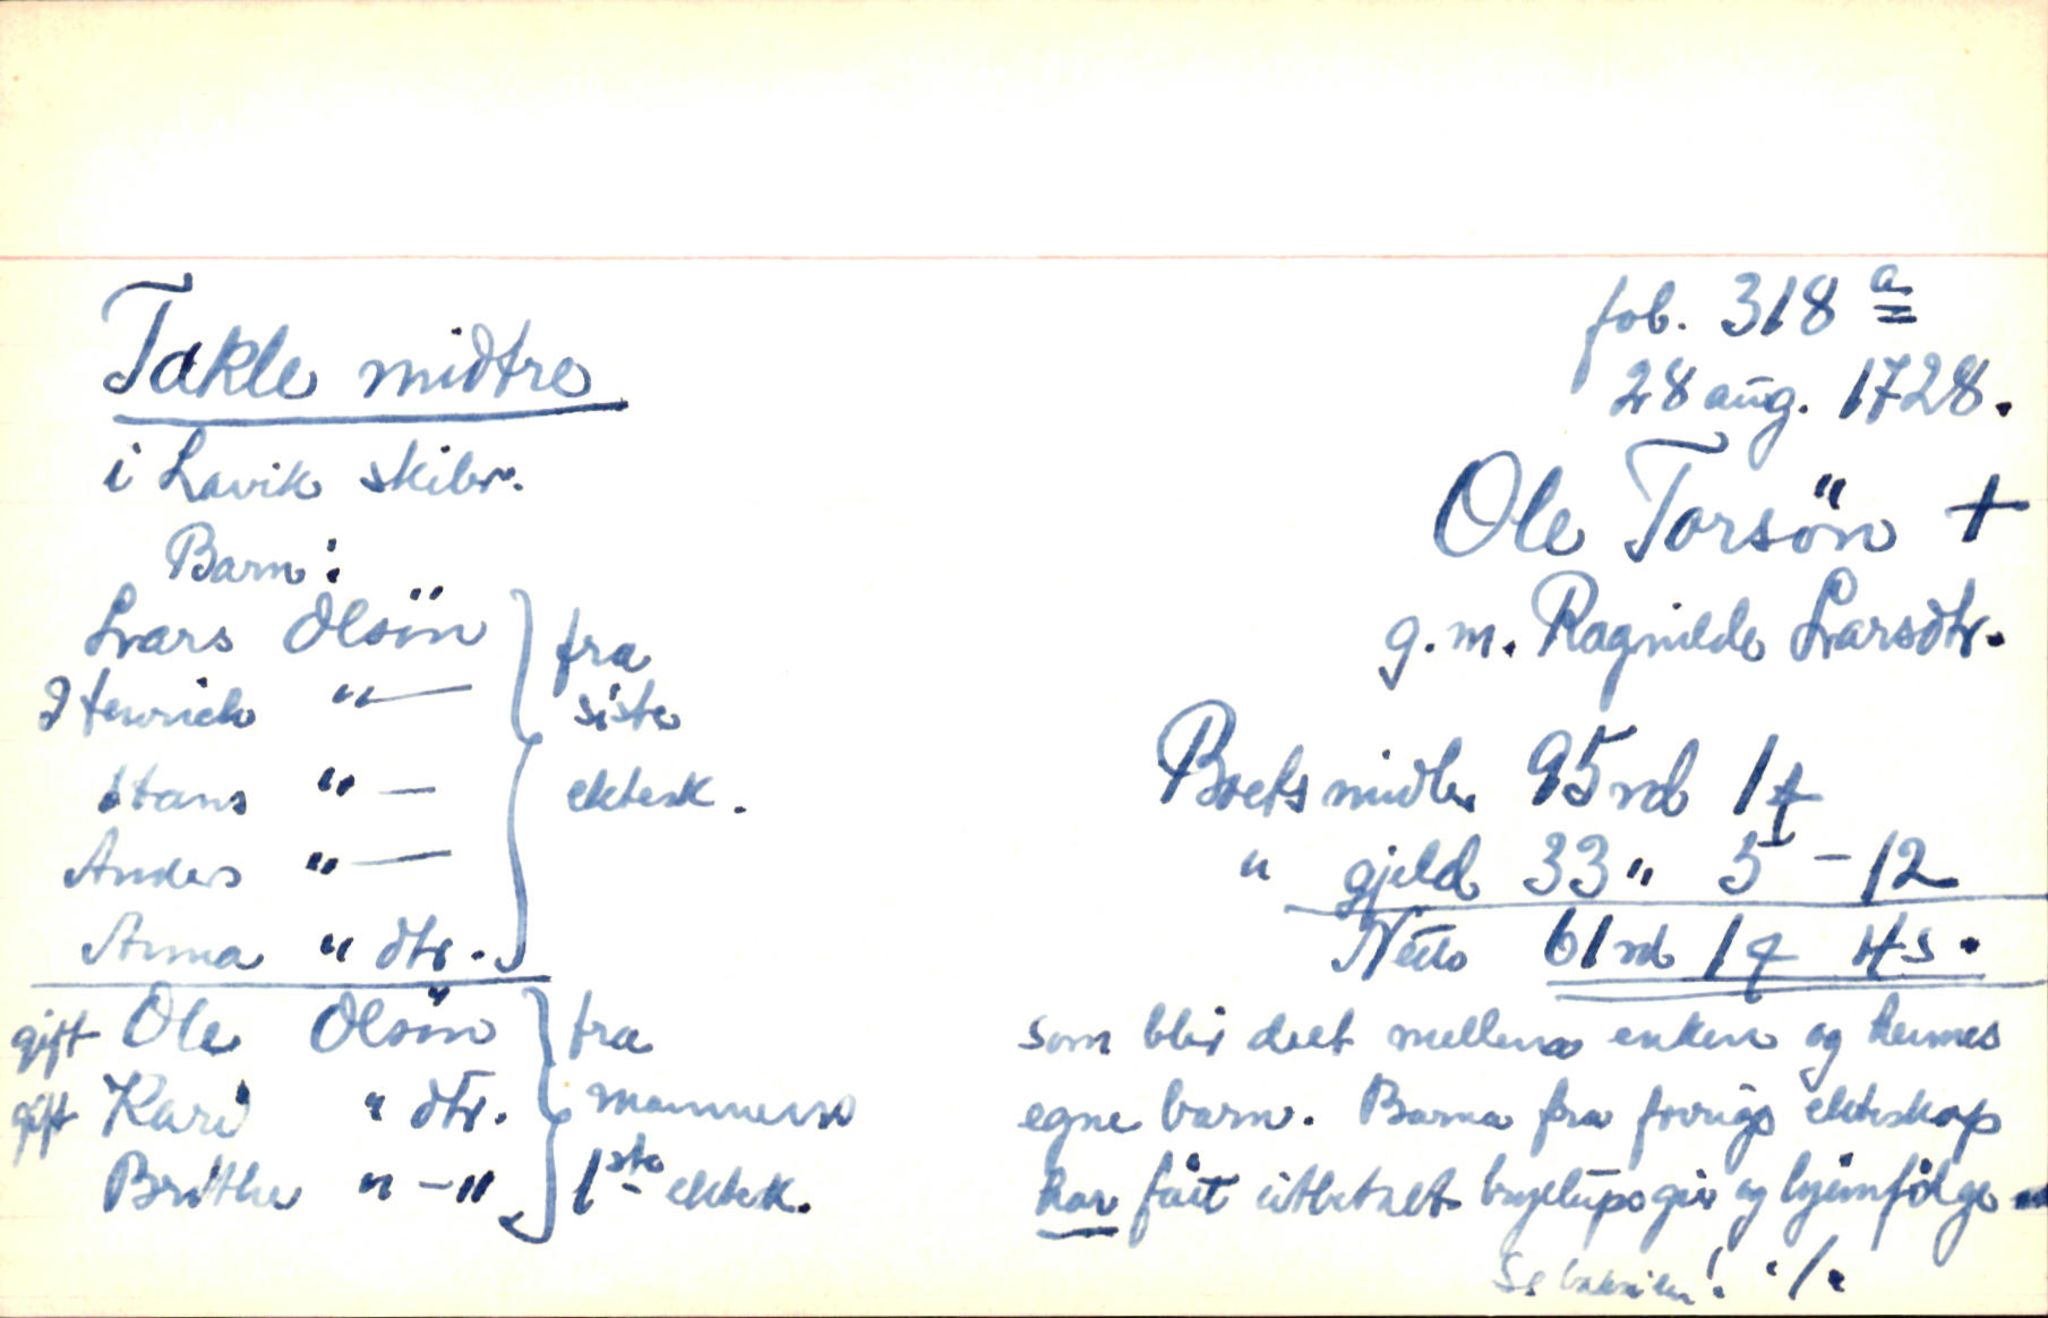 Takle midtre
i Lavik skibr.
Barn:
Lars Olsön
Henrich "—
Hans " —
Anders "—
Anna " dtr.
fra
siste
ektesk.
gift Ole Olsön
gift Kari " dtr.
Brithe " — "
fra
mannens
1ste ektesk.
fol. 318 a
28 aug. 1728.
Ole Torsön +
g.m. Ragnilde Larsdtr.
Boets midler 95 rd 1
" gjeld 33 " 5 - 12
Netto 61 rd 1 4 s.
som blir delt mellem enken og hennes
egne barn. Barna fra forrige ekteskap
har fåit utbetalt bryllupsgier og hjemfölge
Se baksiden! ./.